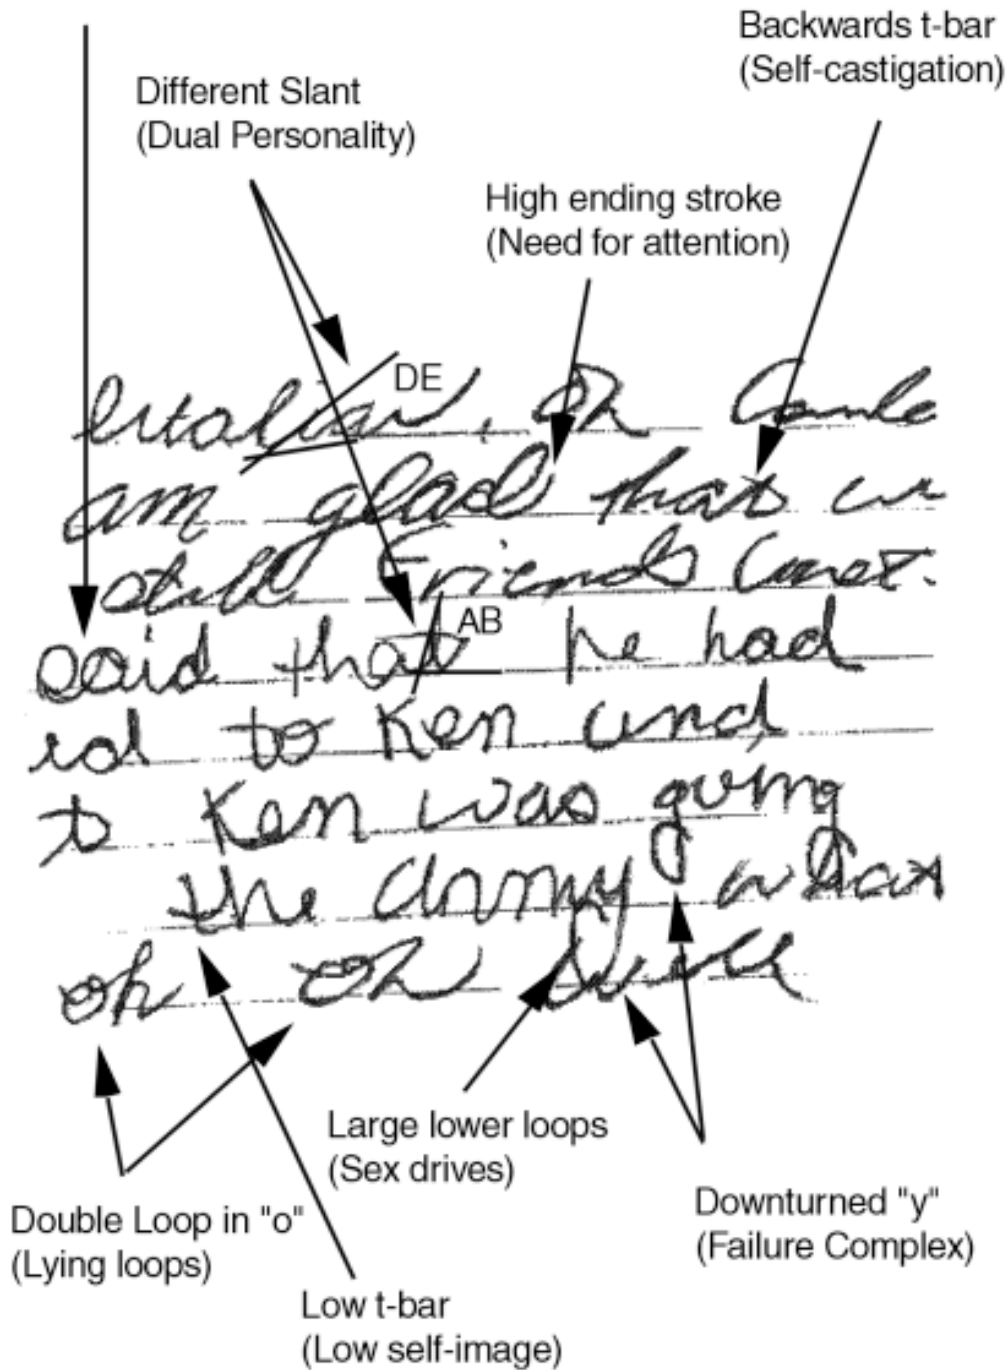 Backwards t-bar
(Self-castigation)
Different Slant
(Dual Personality)
High ending stroke
(Need for attention)
DE
am glad that
still Friends
AB
said that he had
to Ken and
t Ken was going
the army what
oh oh well
Large lower loops
(Sex drives)
Downturned "y"
(Failure Complex)
Double Loop in "o"
(Lying loops)
Low t-bar
(Low self-image)